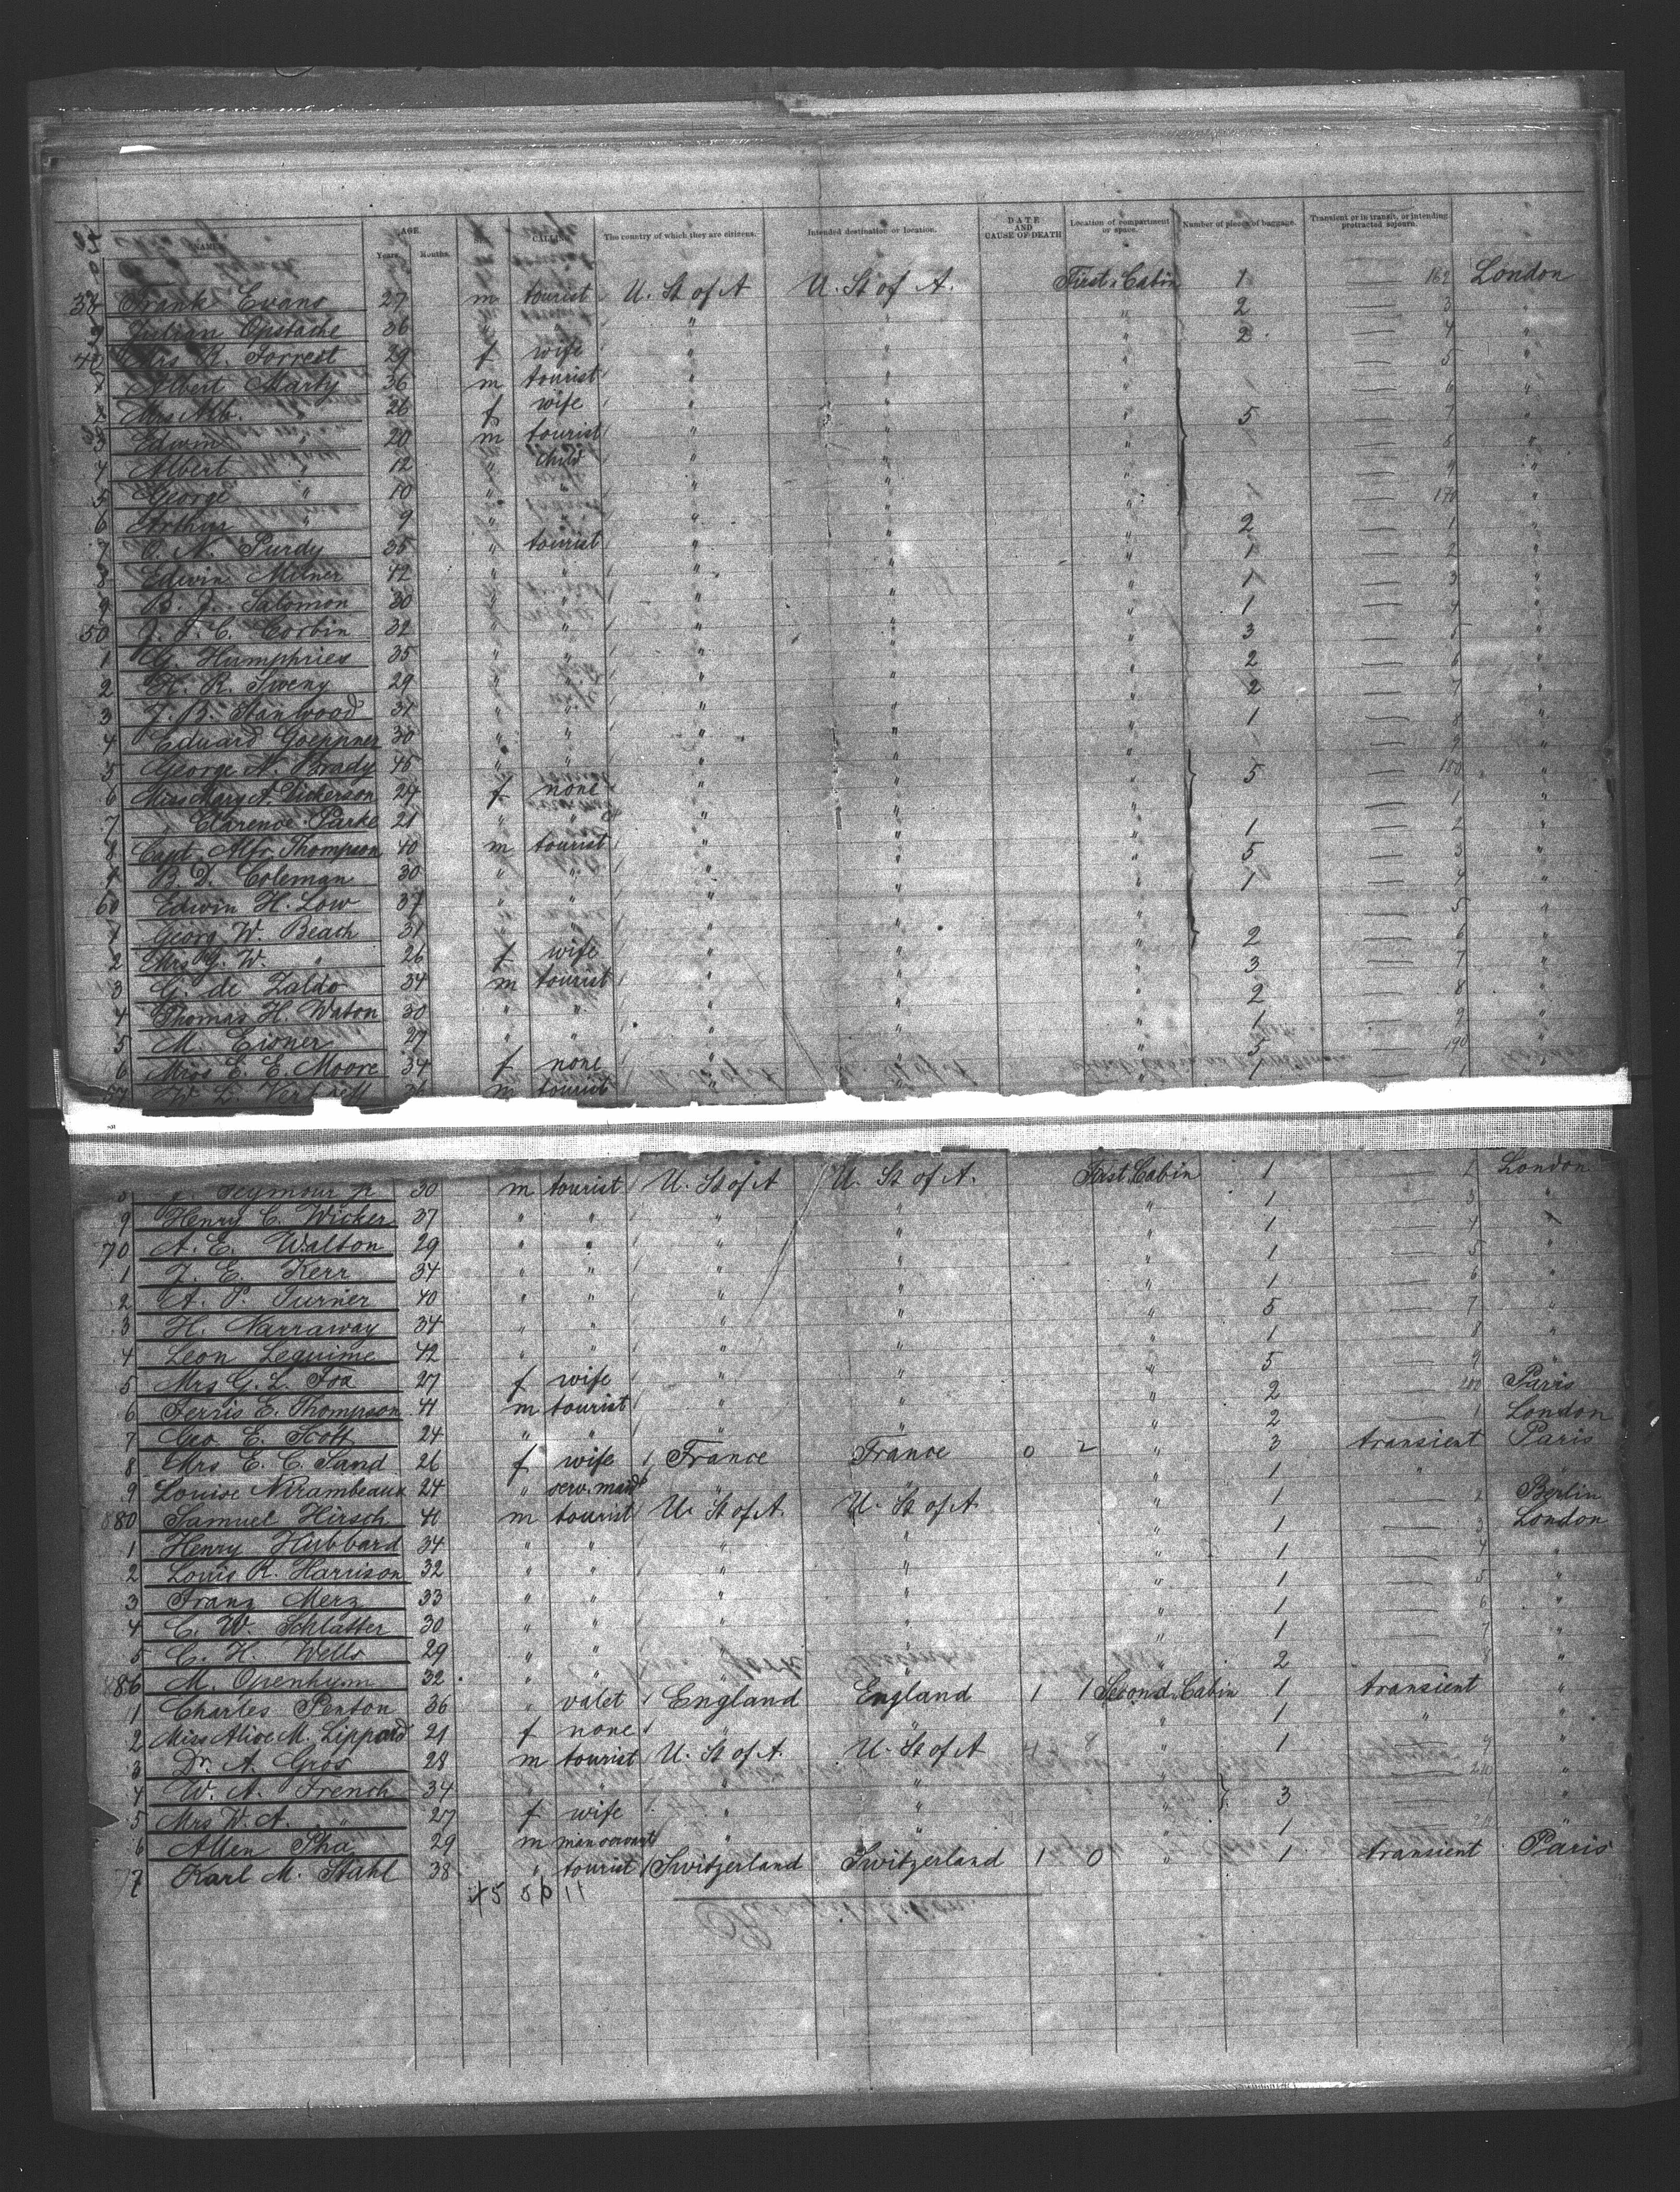 NAMES. AGE. Years. Months. CALLING. The country of which they are citizens. Intended destination or location. DATE AND CAUSE OF DEATH Location of compartment or space. Number of pieces of baggage. Transient or in transit, or intending protracted sojourn.
38 Frank Evans 27 m tourist U. St of A U. St of A. First Cabin 1 — 162 London
9 36 " " " " " 2 — 3 "
40 Mrs R. Forrest 29 f wife " " " 2 — 4 "
1 Albert Marty 36 m tourist " " " — 5 "
2 Mrs Alb. " 26 f wife " " " — 6 "
3 Edwin " 20 m tourist " " " 5 — 7 "
4 Albert " 12 " child " " " — 8 "
5 George " 10 " " " " " — 9 "
6 Arthur " 9 " " " " " — 170 "
7 O. N. Purdy 35 " tourist " " " 2 — 1 "
8 Edwin Milner 42 " " " " " 1 — 2 "
9 B. J. Salomon 30 " " " " " 1 — 3 "
50 J. J. C. Corbin 32 " " " " " 1 — 4 "
1 G. Humphries 35 " " " " " 3 — 5 "
2 R. Sweny 29 " " " " " 2 — 6 "
3 J. B. Stanwood 31 " " " " " 2 — 7 "
4 Eduard Goeppner 30 " " " " " 1 — 8 "
5 George N. Brady 45 " " " " " — 9 "
6 Miss Mary A. Dickerson 24 f none " " " 5 — 180 "
7 " Clarence Parke 21 " " " " " — 1 "
8 Capt. Alfr. Thompson 40 m tourist " " " 1 — 2 "
9 B. D. Coleman 30 " " " " " 5 — 3 "
60 Edwin H. Low 37 " " " " " 1 — 4 "
1 Georg W. Beach 31 " " " " " — 5 "
2 Mrs G. W. " 26 f wife " " " 2 — 6 "
3 G. de Zaldo 34 m tourist " " " 3 — 7 "
4 Thomas H. Waton 30 " " " " " 2 — 8 "
5 M. Eisner 27 " " " " " 1 — 9 "
6 Miss E. E. Moore 34 f none " " " 5 — 190 "
67 W. L. m tourist " " " 1 — 1
8 Seymour jr 30 m tourist U. St of A U. St of A. First Cabin 1 — 2 London
9 Henry C. Wicker 37 " " " " " 1 — 3 "
70 A. E. Walton 29 " " " " " 1 — 4 "
1 J. E. Kerr 34 " " " " " 1 — 5 "
2 A. P. Turner 40 " " " " " 1 — 6 "
3 H. Narraway 34 " " " " " 5 — 7 "
4 Leon Lequime 42 " " " " " 1 — 8 "
5 Mrs G. L. Fox 27 f wife " " " 5 — 9 "
6 Ferris E. Thompson 41 m tourist " " " 2 — 200 Paris
7 Geo E. Scott 24 " " " " " 2 — 1 London
8 Mrs E. C. Sand 26 f wife France France 0 2 " 3 transient Paris
9 Louise Nirambeaux 24 " serv. maid " " " 1 " "
880 Samuel Hirsch 40 m tourist U. St of A. U. St of A. " 1 — 2 Berlin
1 Henry Hubbard 34 " " " " " 1 — 3 London
2 Louis R. Harrison 32 " " " " " 1 — 4 "
3 Franz Merz 33 " " " " " 1 — 5 "
4 C. W. Schlatter 30 " " " " " 1 — 6 "
5 C. H. Wells 29 " " " " " 1 — 7 "
886 M. Openhym 32 " " " " " 2 — 8 "
1 Charles Penton 36 " valet England England 1 1 Second Cabin 1 transient "
2 Miss Alice M. Lippard 21 f none " " " 1 " "
3 Dr. A. Gros 28 m tourist U. St of A. U. St of A 4 8 " 1 — 9 "
4 W. A. French 34 " " " " " — 210 "
5 Mrs W. A. " 27 f wife " " " 3 — 1 "
6 Allen 29 m man servant " " " 1 — "
7 Karl M. Stahl 38 " tourist Switzerland Switzerland 1 0 " 1 transient Paris